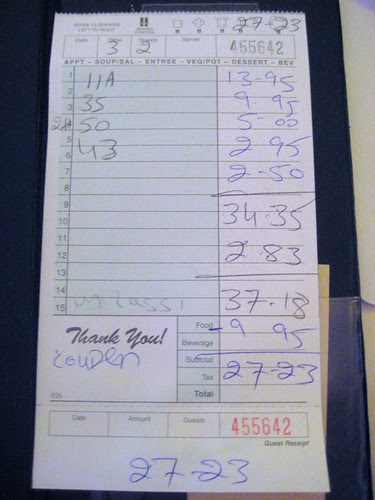 SERVE CLOCKWISE
LEFT TO RIGHT
27-23
Date Table Guests Server
3 2 455642
APPT - SOUP/SAL - ENTREE - VEG/POT - DESSERT - BEV
1 11A 13-95
2
3 35 9-95
4 50 5-00
5
6 43 2 95
7 2-50
8
9 34-35
10
11
12 2.83
13
14 37-18
15 lassi
Thank You!
Coupen
Food - 9 95
Beverage
Subtotal 27-23
Tax
Total
Date Amount Guests 455642
Guest Receipt
27-23